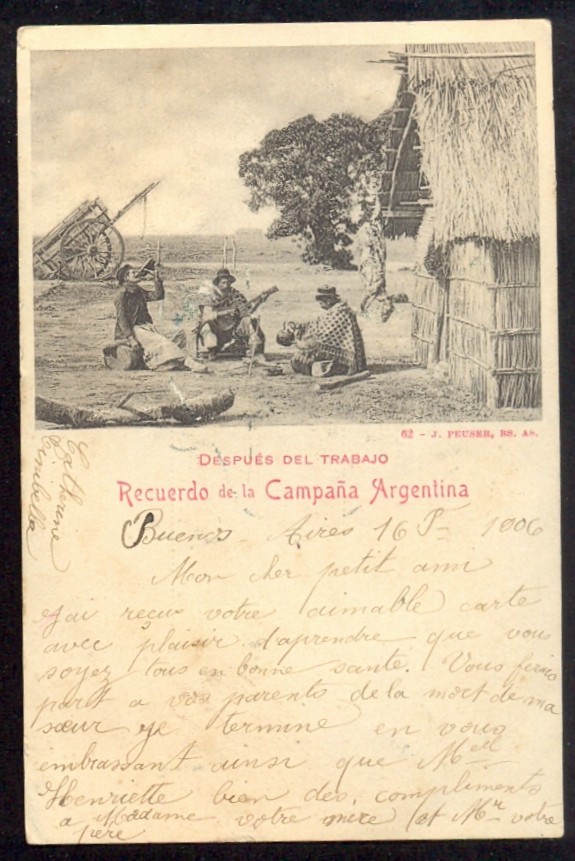 62 - J. PEUSER, BS. AS.
DESPUÉS DEL TRABAJO
Recuerdo de la Campaña Argentina
Buenos Aires 16 1906
Mon cher petit ami
J'ai recu votre aimable carte
avec plaisir d'aprendre que vous
soyez tous en bonne sante. Vous
part a vos parents de la mort de ma
sœur je termine en vous
embrassant ainsi que Mell
Henriette bien des compliments
a Madame votre mere et Mr votre
pere
Catherine